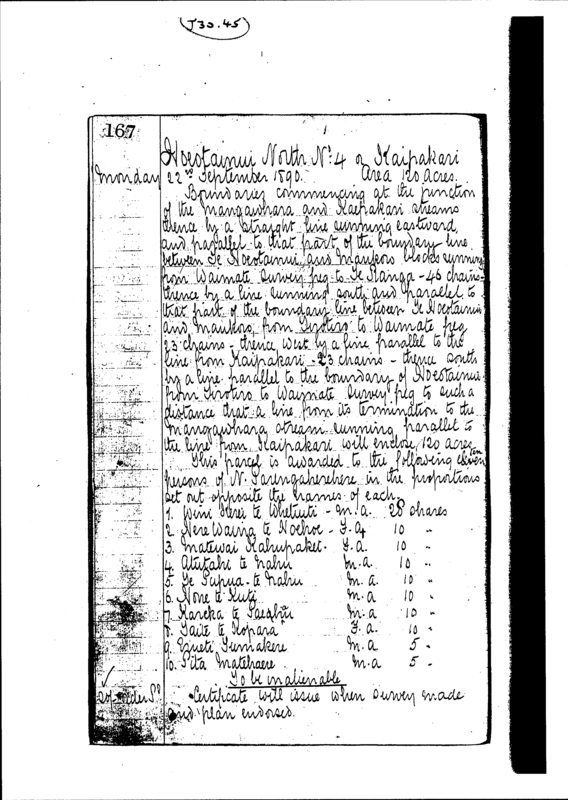 J30.45
167
Hoeotainui North No 4 or Kaipakari
Monday 22nd September 1890. Area 120 acres.
Boundaries commencing at the junction
of the Mangawhara and Kaipakari streams
thence by a straight line running eastward
and parallel to that part of the boundary line
between Te Hoeotainui and Maukoro blocks running
from Waimate Survey peg to Te Ranga - 46 chains -
thence by a line running south and parallel to
that part of the boundary line between Te Hoeotainui
and Maukoro, from Tirotiro to Waimate peg
23 chains - thence west by a line parallel to the
line from Kaipakari - 23 chains - thence south
by a line parallel to the boundary of Hoeotainui
from Tirotiro to Waimate Survey peg to such a
distance that a line from its termination to the
Mangawhara stream running parallel to
the line from Kaipakari will enclose 120 acres
This parcel is awarded to the following eleven ten
persons of N. Parengaherehere in the proportions
set out opposite the names of each.
1. Wini Kerei te Whetuiti - m.a. 28 shares
2. Nere Waina te Hoehoe - F.a. 10 "
3. Matewai Kahupaket. F.a. 10 "
4. Atutahi te Nahu m.a. 10 "
5. Te Papua te Nahu m.a. 10 "
6. Hone te Kuti m.a. 10 "
7. Kareka te m.a. 10 "
8. Taite te Kopara F.a. 10 "
9. m.a. 5 "
10. Pita Matehaere m.a. 5 "
To be inalienable
Certificate will issue when survey made
and plan endorsed.